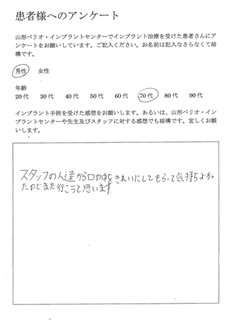 患者様へのアンケート
山形ペリオ・インプラントセンターでインプラント治療を受けた患者さんにア
ンケートをお願いしています。ご記入ください。お名前は記入なさらなくて結
構です。
男性 女性
年齢
20 代 30 代 40 代 50 代 60 代 70 代 80 代 90 代
インプラント手術を受けた感想をお願いします。あるいは、山形ペリオ・イン
プラントセンターや先生及びスタッフに対する感想でも結構です。宜しくお願
いします。
スタッフの人達から口の中をきれいにしてもらって気持ちよかっ
たのでまた行こうと思います